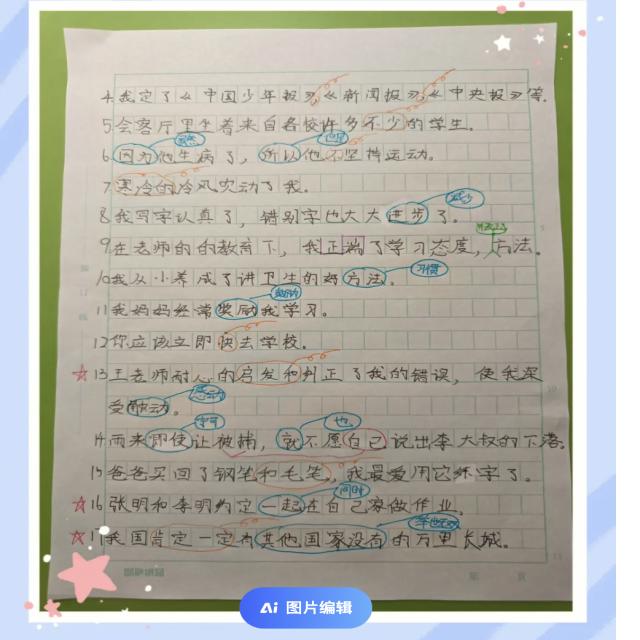 4.我定了《中国少年报》《新闻报》《中央报》等.
5.会客厅里坐着来自各校许多不少的学生.
虽然 但是
6.因为他生病了,所以他不坚持运动。
7.寒冷的冷风吹动了我。
减少
8.我写字认真了,错别字也大大进步了。
9.在老师的的教育下,我正端了学习态度,方法。
习惯
10我从小养成了讲卫生的好方法。
鼓励
11我妈妈经常奖励我学习。
12你应该立即快去学校。
☆13王老师耐心的启发和纠正了我的错误,使我深
感动
受触动。
宁可 也
14雨来即使让被捕,就不愿自己说出李大叔的下落。
15爸爸买回了钢笔和毛笔,我最爱用它练字了。
同时
☆16张明和李明约定一起在自己家做作业.
举世无双
☆17我国肯定一定有其他国家没有的万里长城。
Ai 图片编辑